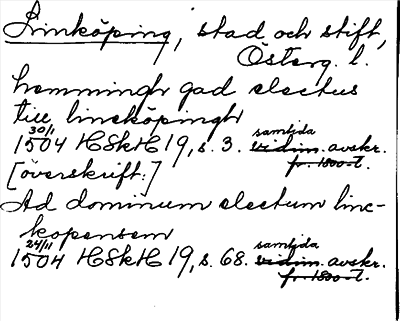 Linköping, stad och stift,
Österg. l.
hemmingh gad electus
till lincköpingh
30/1 samtida
1504 HSkH 19, s. 3. vidim. avskr.
fr. 1800-t.
[överskrift:]
Ad dominum electum linc-
kopensem
24/11 samtida
1504 HSkH 19, s. 68. vidim. avskr.
fr. 1800-t.